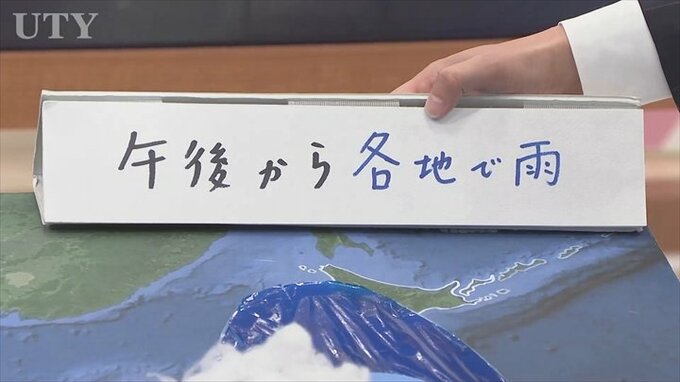 UTY
午後から各地で雨